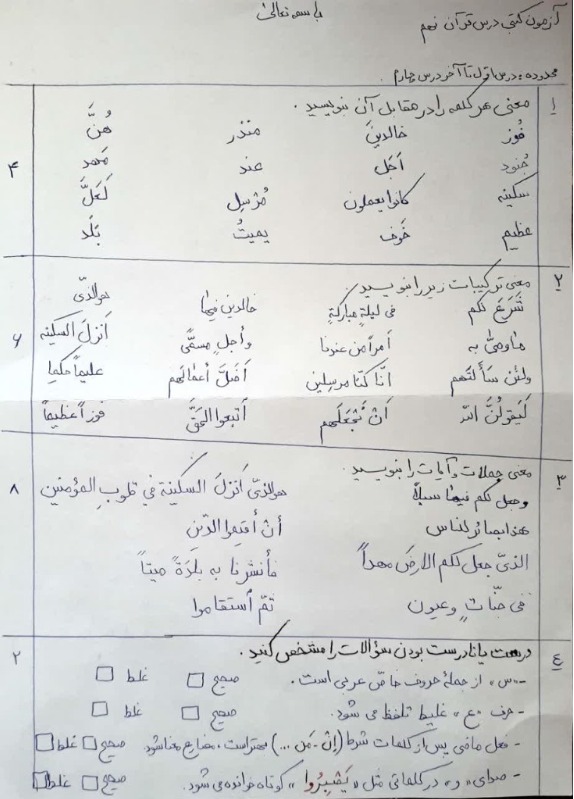 باسمه تعالی
آزمون کتبی درس قرآن نهم
محدوده: درس اول تا آخر درس چهارم
۱ معنی هر کلمه را در مقابل آن بنویسید.
فُوز خالدینَ منذر هُنَّ
جُنود اَجَل عند مَهد ۴
سکینه کانوا یعملون مُرْسِل لَعَلَّ
عظیم خَوف یمیتُ بَلَد
۲ معنی ترکیبات زیر را بنویسید.
شَرَعَ لکم فی لیلةٍ مبارکةٍ خالدین فیها هوالذّی
ما وصّیٰ به أمراً من عندنا و أجلٍ مسمًّی اَنزلَ السکینه ۶
ولئن سَألتَهم اِنّا کنّا مرسلین اَضَلَّ اَعمالَهم علیماً حکیما
لَیَقولُنَّ الله اَنْ نَجْعَلَهم اتَّبعوا الحَقَّ فوزاً عظیماً
۳ معنی جملات و آیات را بنویسید.
وجعل لکم فیها سبلاً هوالذّی اَنزلَ السکینة فی قلوبِ المؤمنین ۸
هذا بصائر للناس أنْ أقیموا الدّین
الذّی جعل لکم الارضَ مهداً فأنشرنا به بلدةً میتاً
فی جنّاتٍ و عیون ثمّ استقاموا
٤ درست یا نادرست بودن سؤالات را مشخص کنید. ۲
- «س» از جملهٔ حروف خاص عربی است. صحیح غلط
- حرف «ع» غلیظ تلفظ می شود. صحیح غلط
- فعل ماضی پس از کلمات شرط (إنْ - مَن ...) بهتر است، مضارع معنا شود صحیح غلط
- صدای «و» در کلماتی مثل «» کوتاه خوانده می شود. صحیح غلط